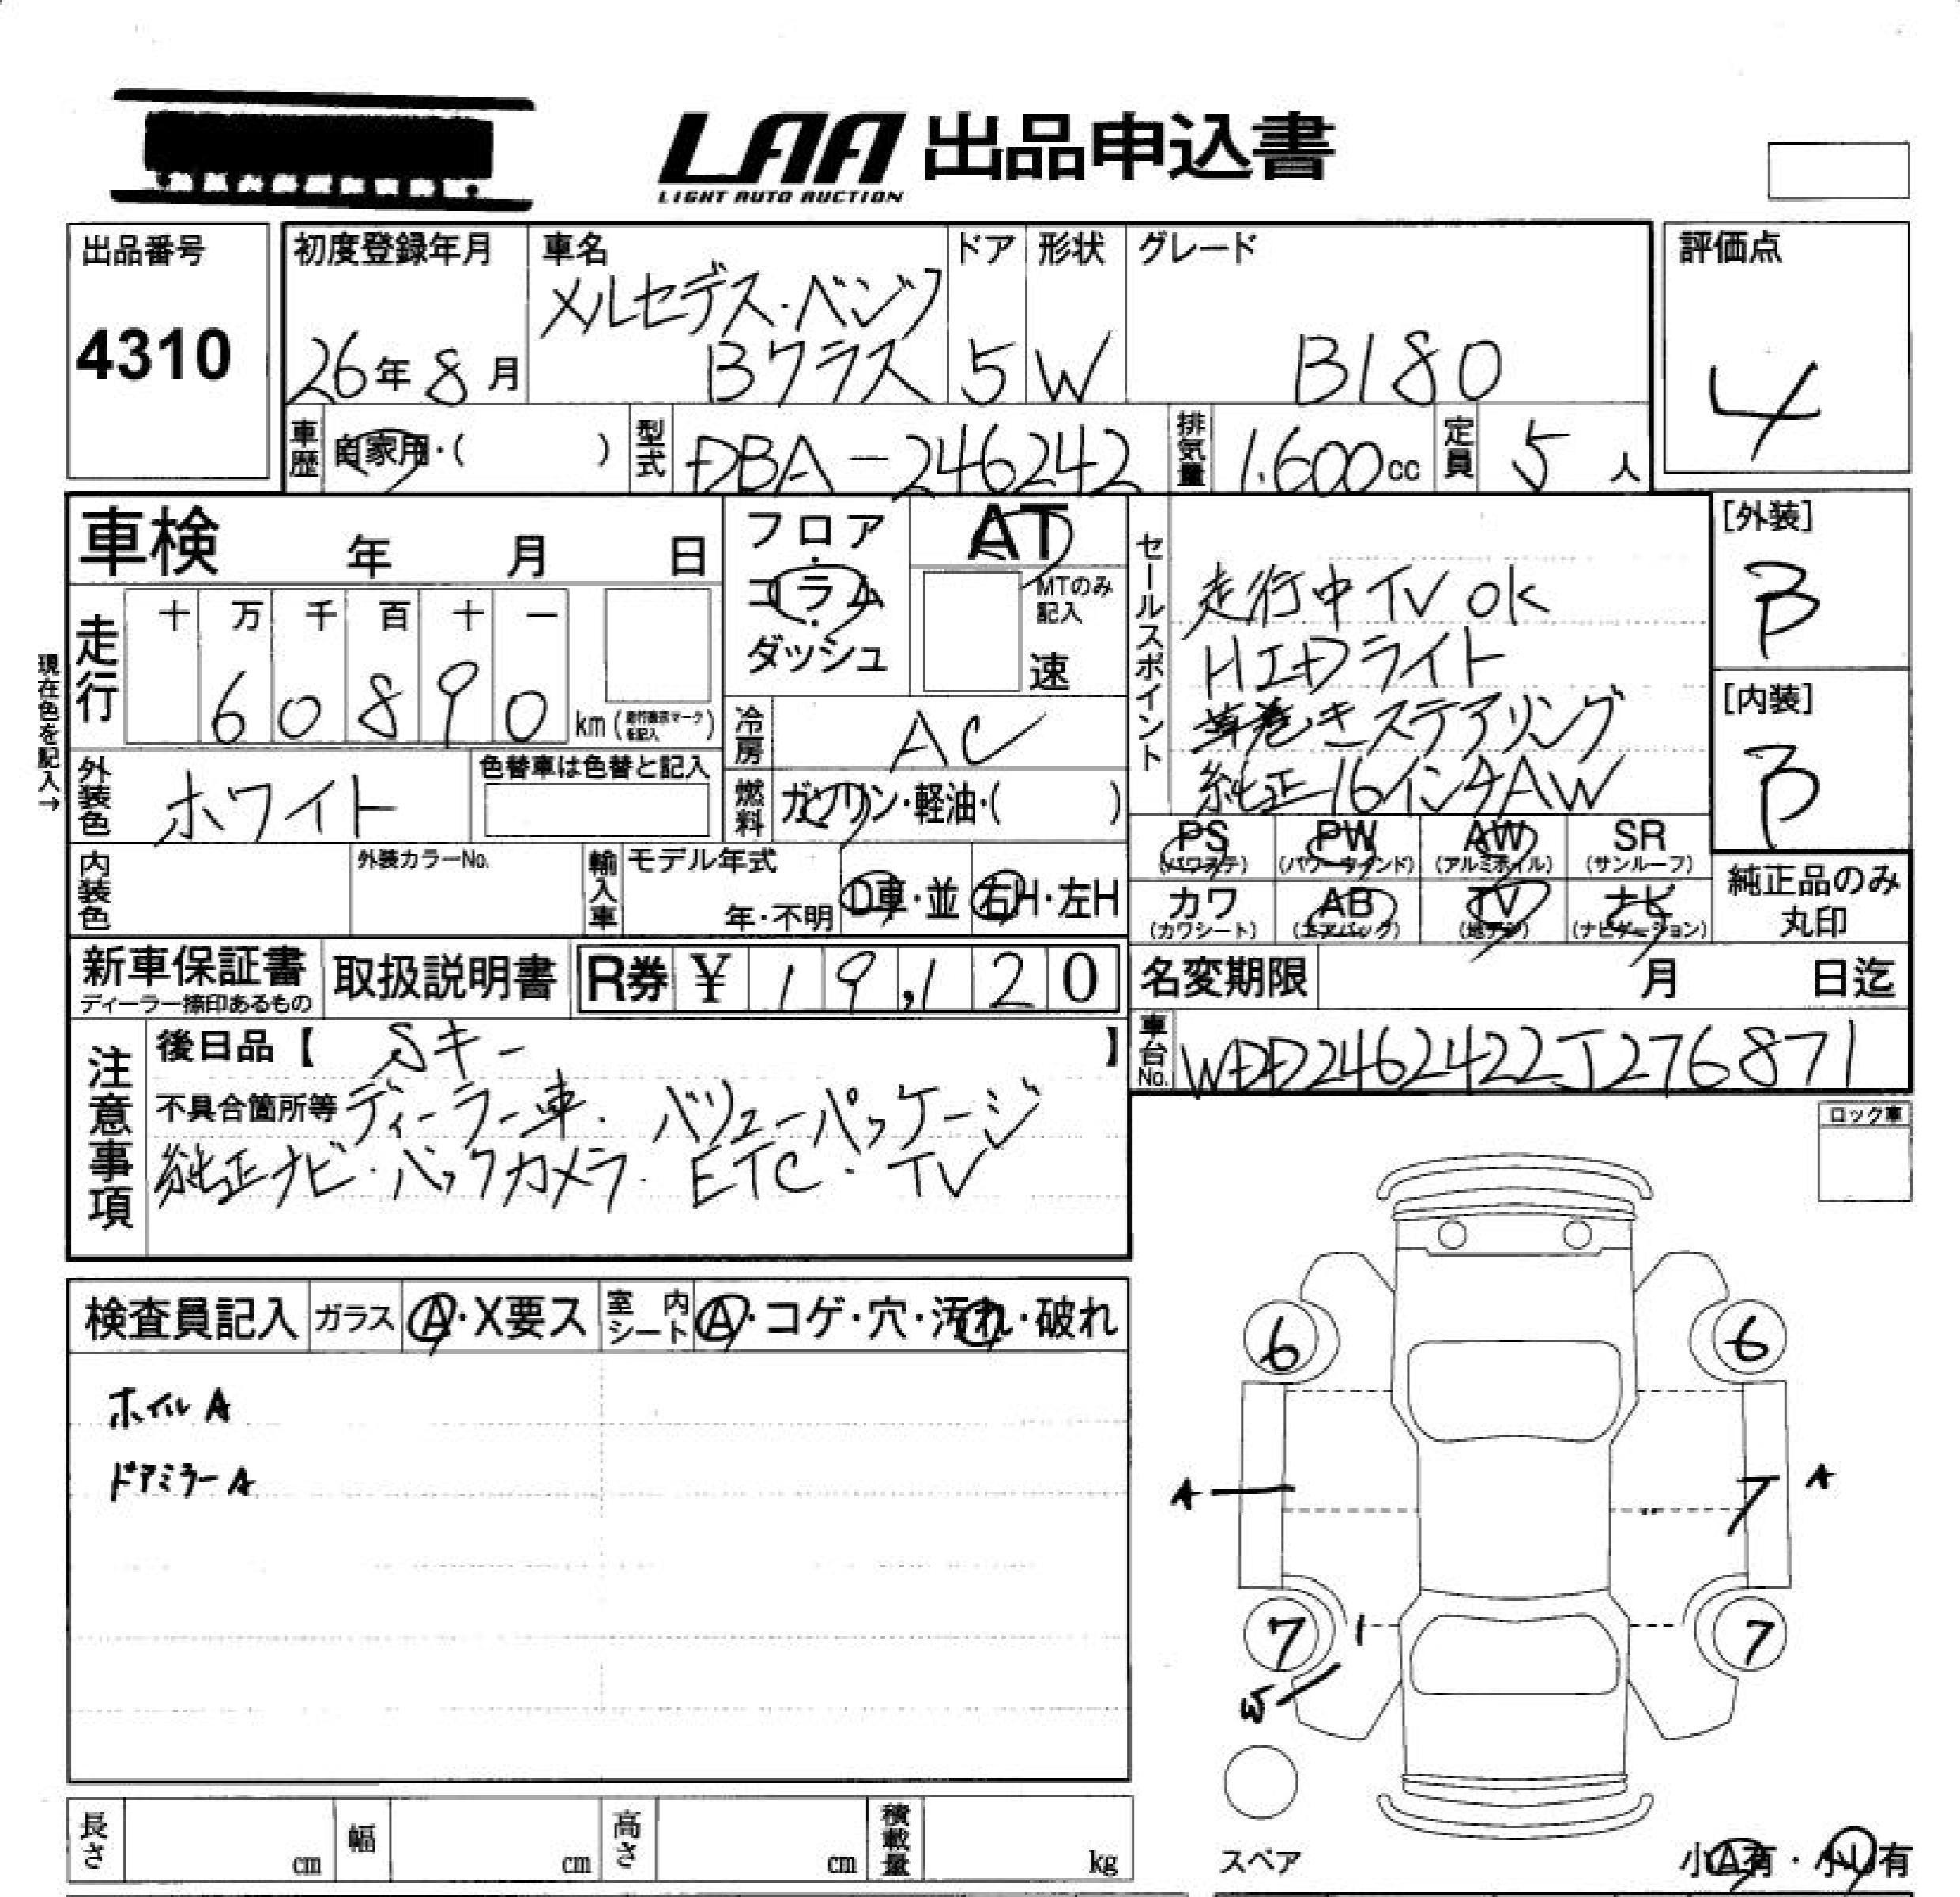 LAA 出品申込書
LIGHT AUTO AUCTION
出品番号
4310
初度登録年月
26年8月
車名
メルセデス・ベンツ
Bクラス
ドア
5
形状
W
グレード
B180
評価点
4
車歴
自家用・( )
型式
DBA-246242
排気量
1.600cc
定員
5人
車検 年 月 日
フロア・コラム・ダッシュ
AT
MTのみ記入
速
セールスポイント
走行中TV OK
HIDライト
革巻きステアリング
純正16インチAW
[外装]
B
[内装]
B
現在色を記入→
走行
十 万 千 百 十 一
6 0 8 9 0 km (走行表示マークを記入)
冷房
AC
外装色
ホワイト
色替車は色替と記入
燃料
ガソリン・軽油・( )
PS (パワステ)
PW (パワーウインド)
AW (アルミホイル)
SR (サンルーフ)
カワ (カワシート)
AB (エアバック)
TV (地デジ)
ナビ (ナビゲーション)
純正品のみ
丸印
内装色
外装カラーNo.
輸入車
モデル年式
年・不明
D車・並
右H・左H
新車保証書
ディーラー捺印あるもの
取扱説明書
R券 ¥ 19,120
名変期限 月 日迄
車台No.
WDD2462422J276871
注意事項
後日品【 Sキー 】
不具合箇所等 ディーラー車. バリューパッケージ
純正ナビ・バックカメラ. ETC・TV
ロック車
検査員記入
ガラス
A・X要ス
室内シート
A・コゲ・穴・汚れ・破れ
ホイル A
ドアミラー A
6
6
A
7 A
7
1
7
W
スペア
小A有・小U有
長さ cm
幅 cm
高さ cm
積載量 kg